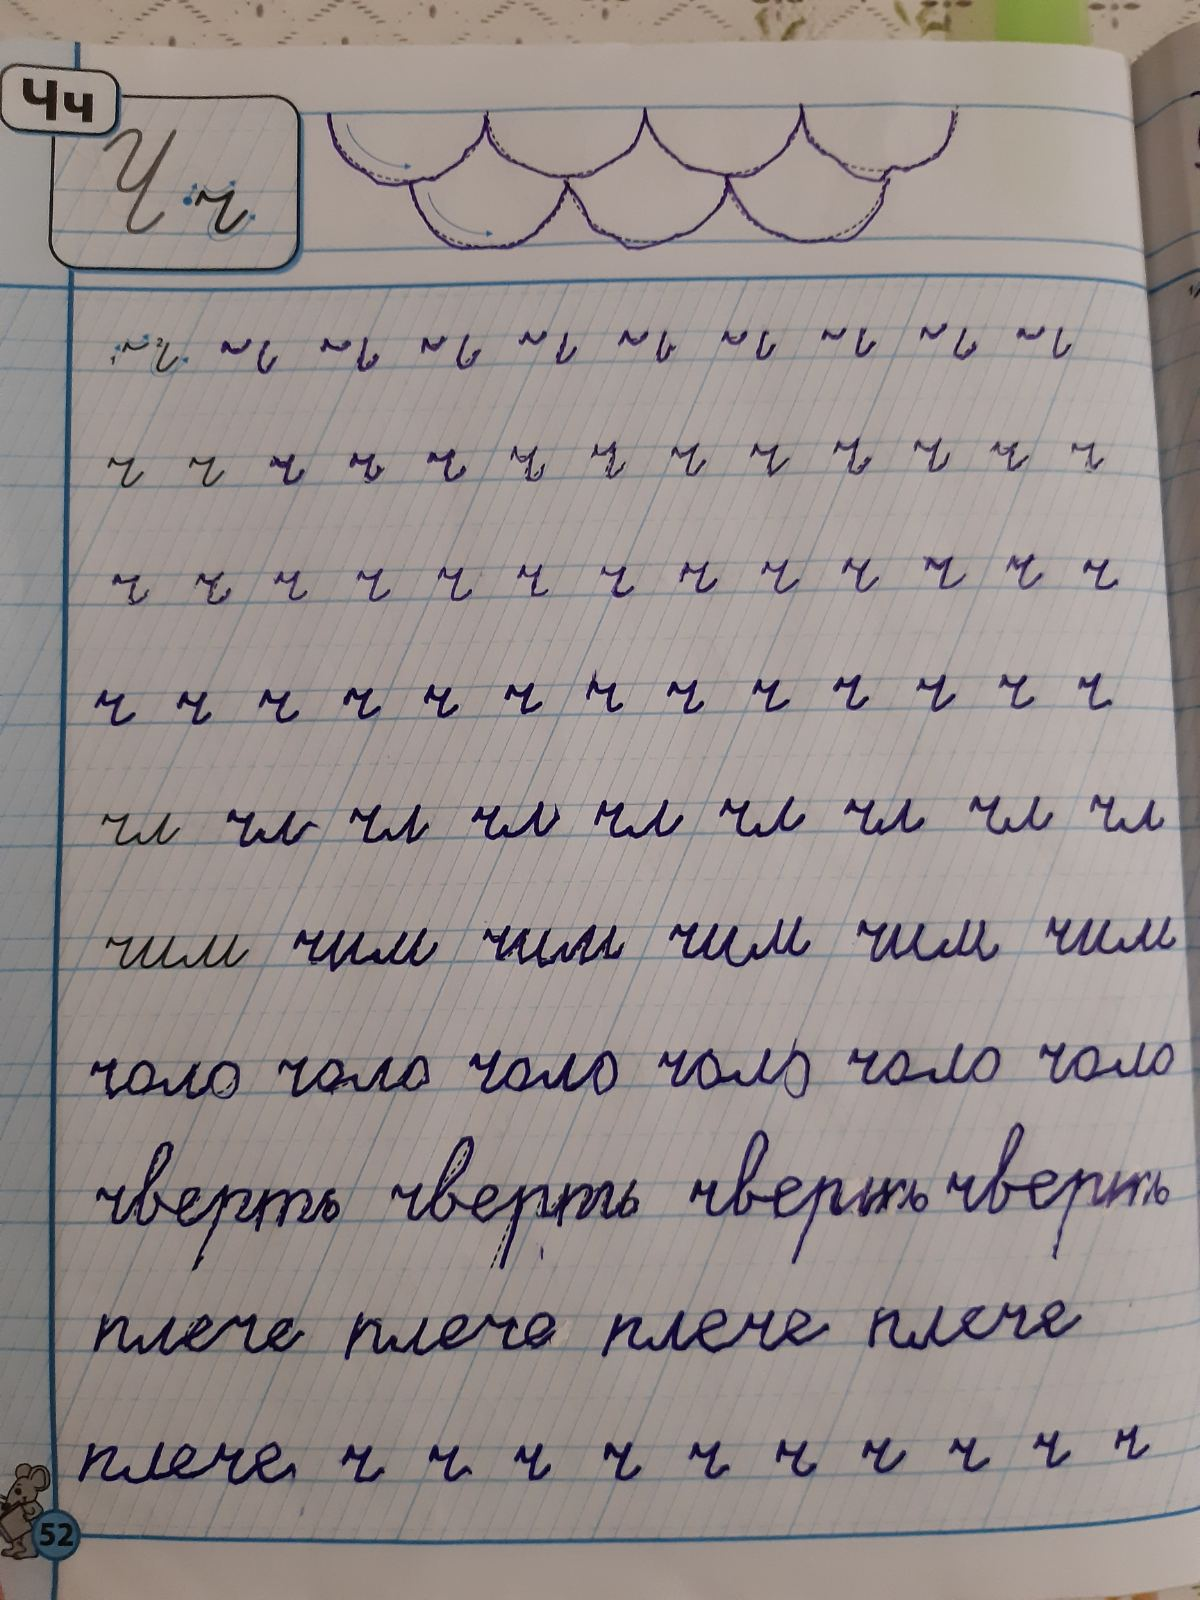 Чч
Ч ч
ч ч ч ч ч ч ч ч ч ч ч ч ч
ч ч ч ч ч ч ч ч ч ч ч ч ч
ч ч ч ч ч ч ч ч ч ч ч ч ч
чл чл чл чл чл чл чл чл чл
чим чим чим чим чим чим
чоло чоло чоло чоло чоло чоло
чверть чверть чверть чверть
плече плече плече плече
плече ч ч ч ч ч ч ч ч ч ч
52